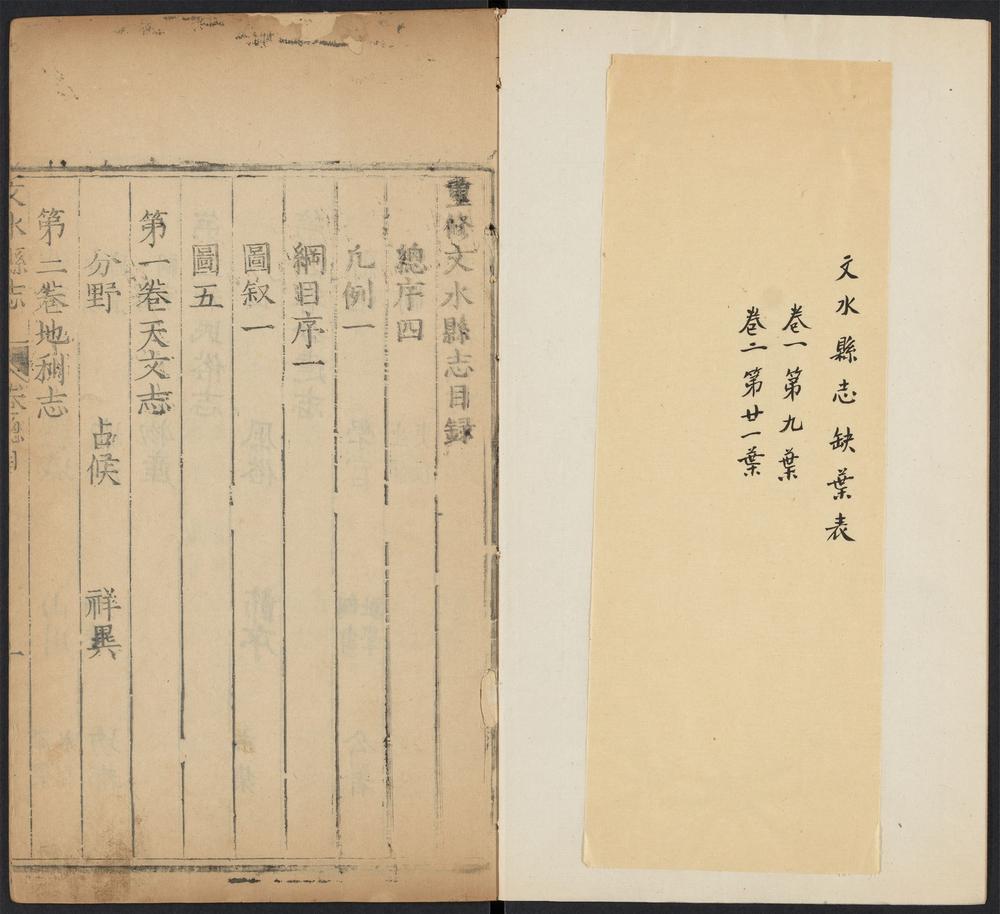 文水縣志缺葉表
卷一第九葉
卷二第廿一葉
重修文水縣志目録
總序四
凡例一
綱目序一
圖叙一
圖五
第一卷天文志
分野 占候 祥異
第二卷地利志
文水縣志